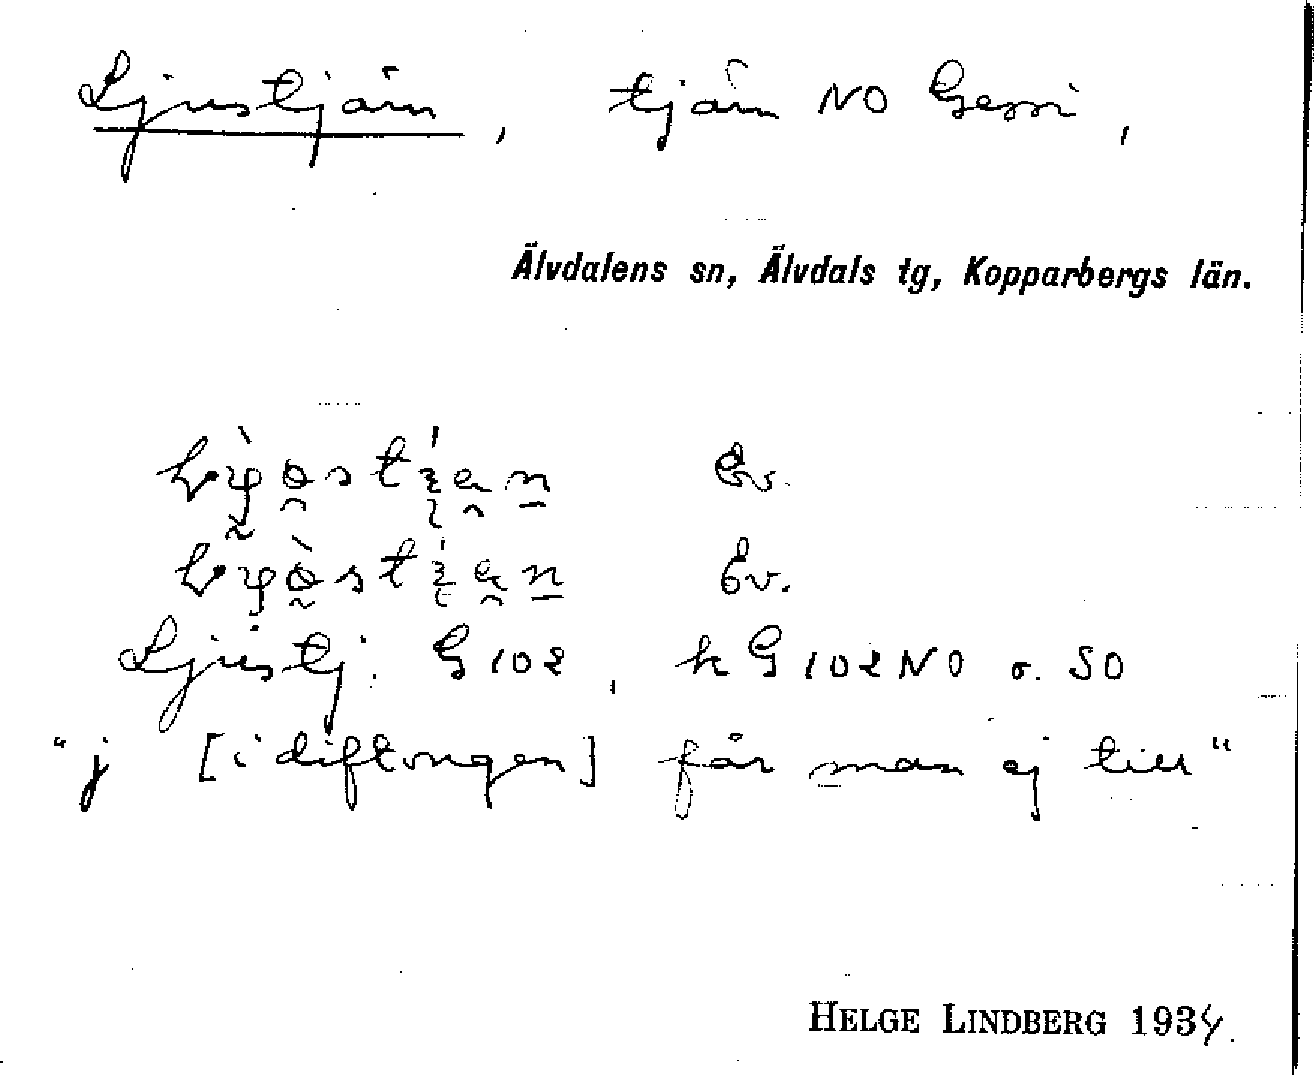 Ljustjärn, tjärn NO Gessi,
Älvdalens sn, Älvdals tg, Kopparbergs län.
Ev.
Ev.
Ljustj. G 102, k G 102 NO o. SO
"j [i diftongen] får man ej till"
HELGE LINDBERG 1934.